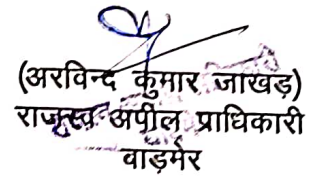 (अरविन्द कुमार जाखड़)
राजस्व अपील प्राधिकारी
वाड़मेर